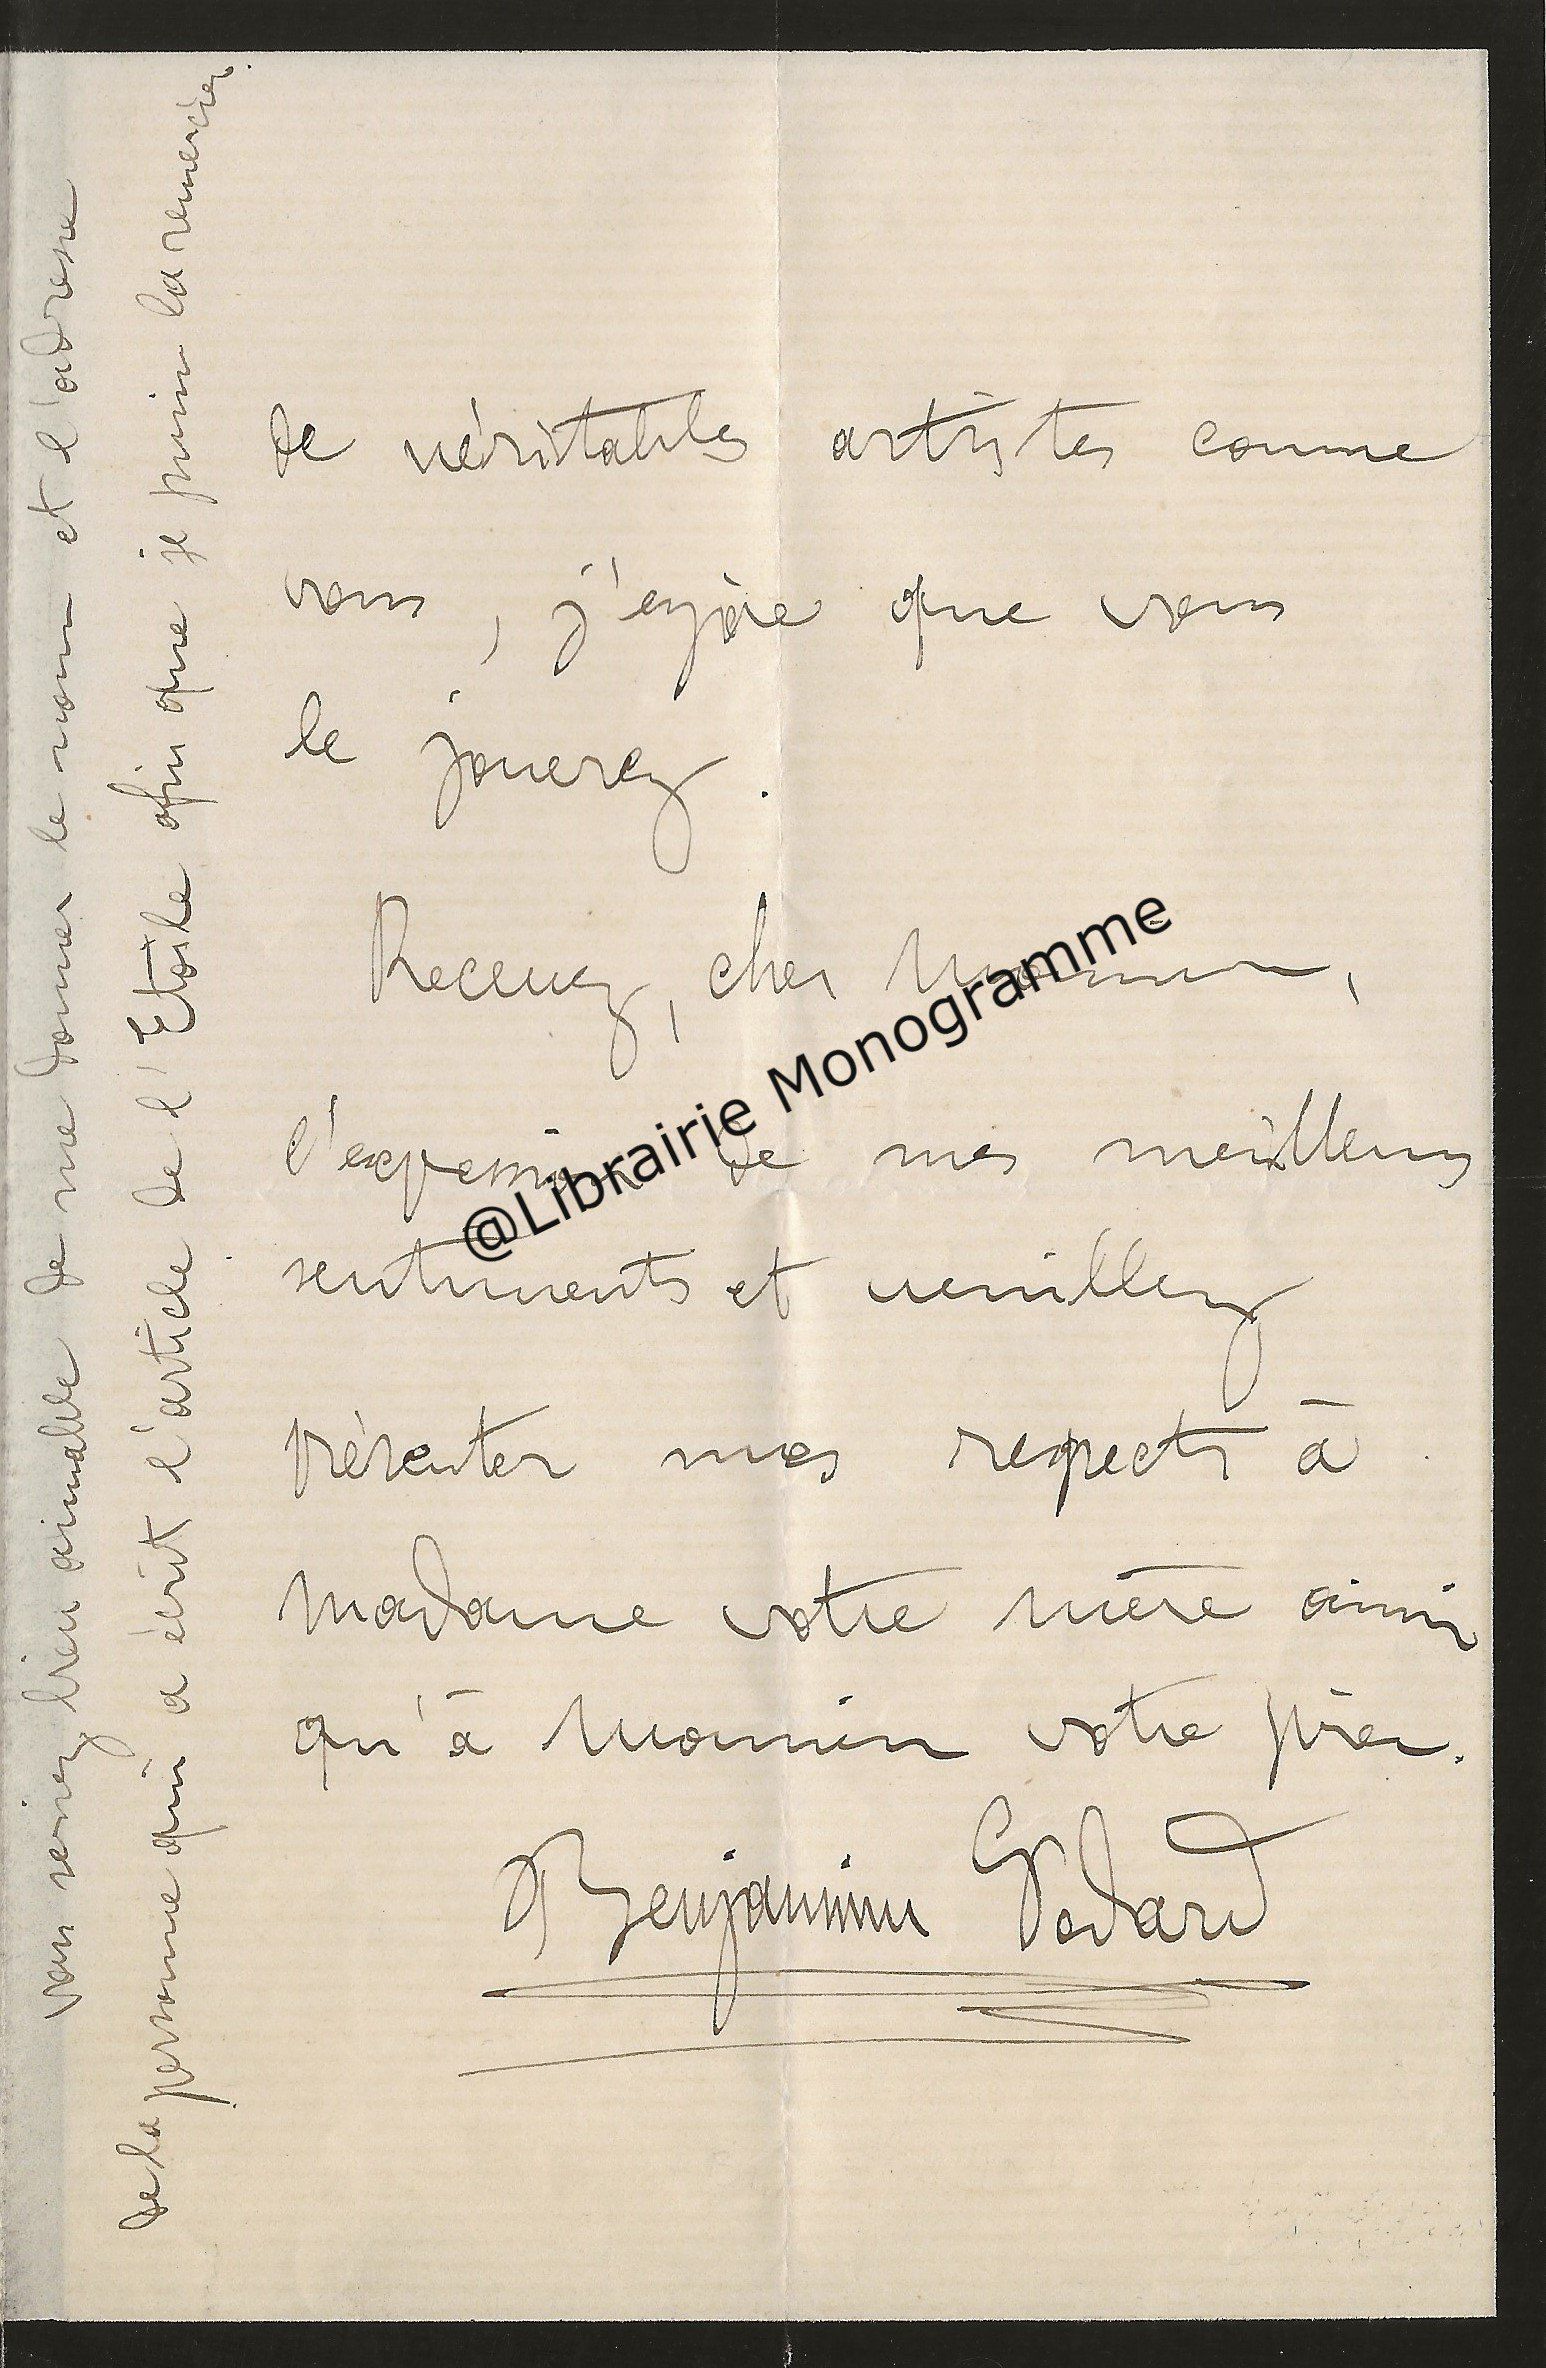 de véritables artistes comme
vous, j'espère que vous
le jouerez.
Recevez, cher Monsieur,
l'expression de mes meilleurs
sentiments et veuillez
présenter mes respects à
Madame votre mère ainsi
qu'à Monsieur votre père.
Benjamin Godard
vous seriez bien aimable de me donner le nom et l'adresse
de la personne qui a écrit l'article de l'Etoile afin que je puisse la remercier.
@Librairie Monogramme